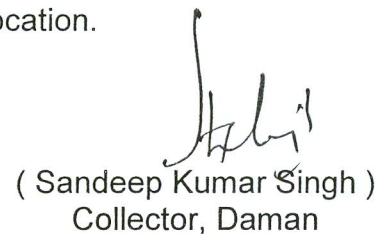 ocation.
( Sandeep Kumar Singh )
Collector, Daman